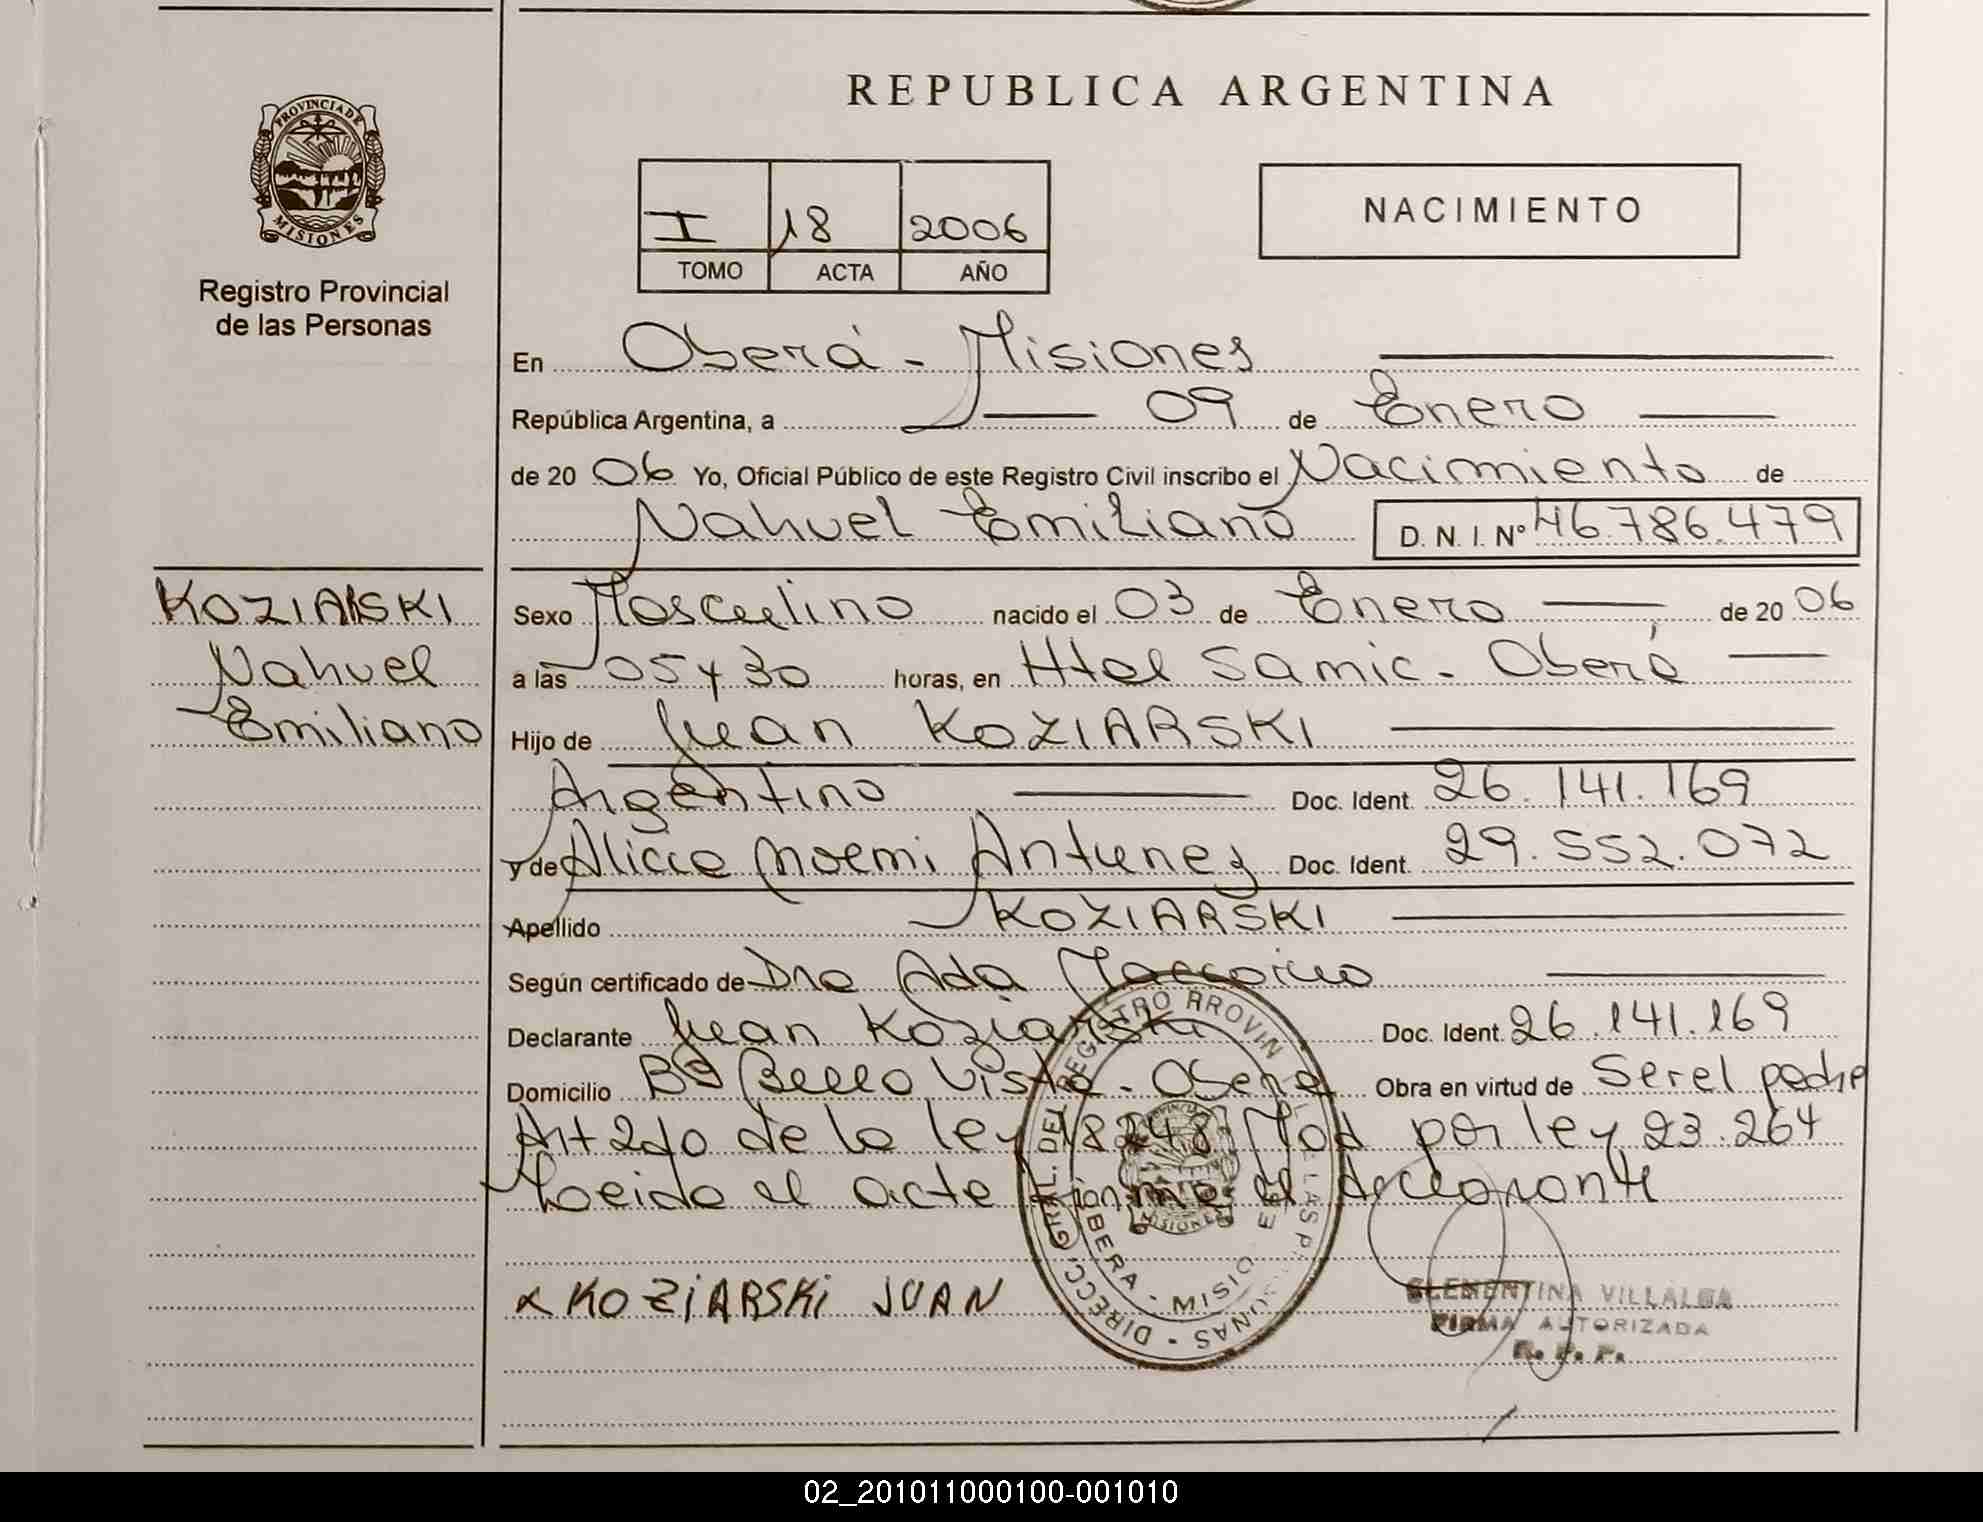 REPUBLICA ARGENTINA
PROVINCIA DE
MISIONES
Registro Provincial
de las Personas
I 18 2006
TOMO ACTA AÑO
NACIMIENTO
En Oberá - Misiones
República Argentina, a 09 de Enero
de 20 06 Yo, Oficial Público de este Registro Civil inscribo el Nacimiento de
Nahuel Emiliano D. N. I. Nº 46.786.479
KOZIARSKI
Nahuel
Emiliano
Sexo Masculino nacido el 03 de Enero de 20 06
a las 05 y 30 horas, en Htal Samic - Oberá
Hijo de Juan KOZIARSKI
Argentino Doc. Ident. 26.141.169
y de Alicia Noemi Antunez Doc. Ident. 29.552.072
Apellido KOZIARSKI
Según certificado de Dra Ada
Declarante Juan Koziarski Doc. Ident. 26.141.169
Domicilio Bº Bella Vista - Oberá Obra en virtud de Ser el padre
Art 2do de la ley 18248 Mod por ley 23.264
Leida el acta firma el declarante
KOZiARSKi JUAN
DIRECC. GRAL. DEL REGISTRO PROVIN
OBERA - MISIO
CLEMENTINA VILLALBA
FIRMA AUTORIZADA
R. P. P.
02_201011000100-001010